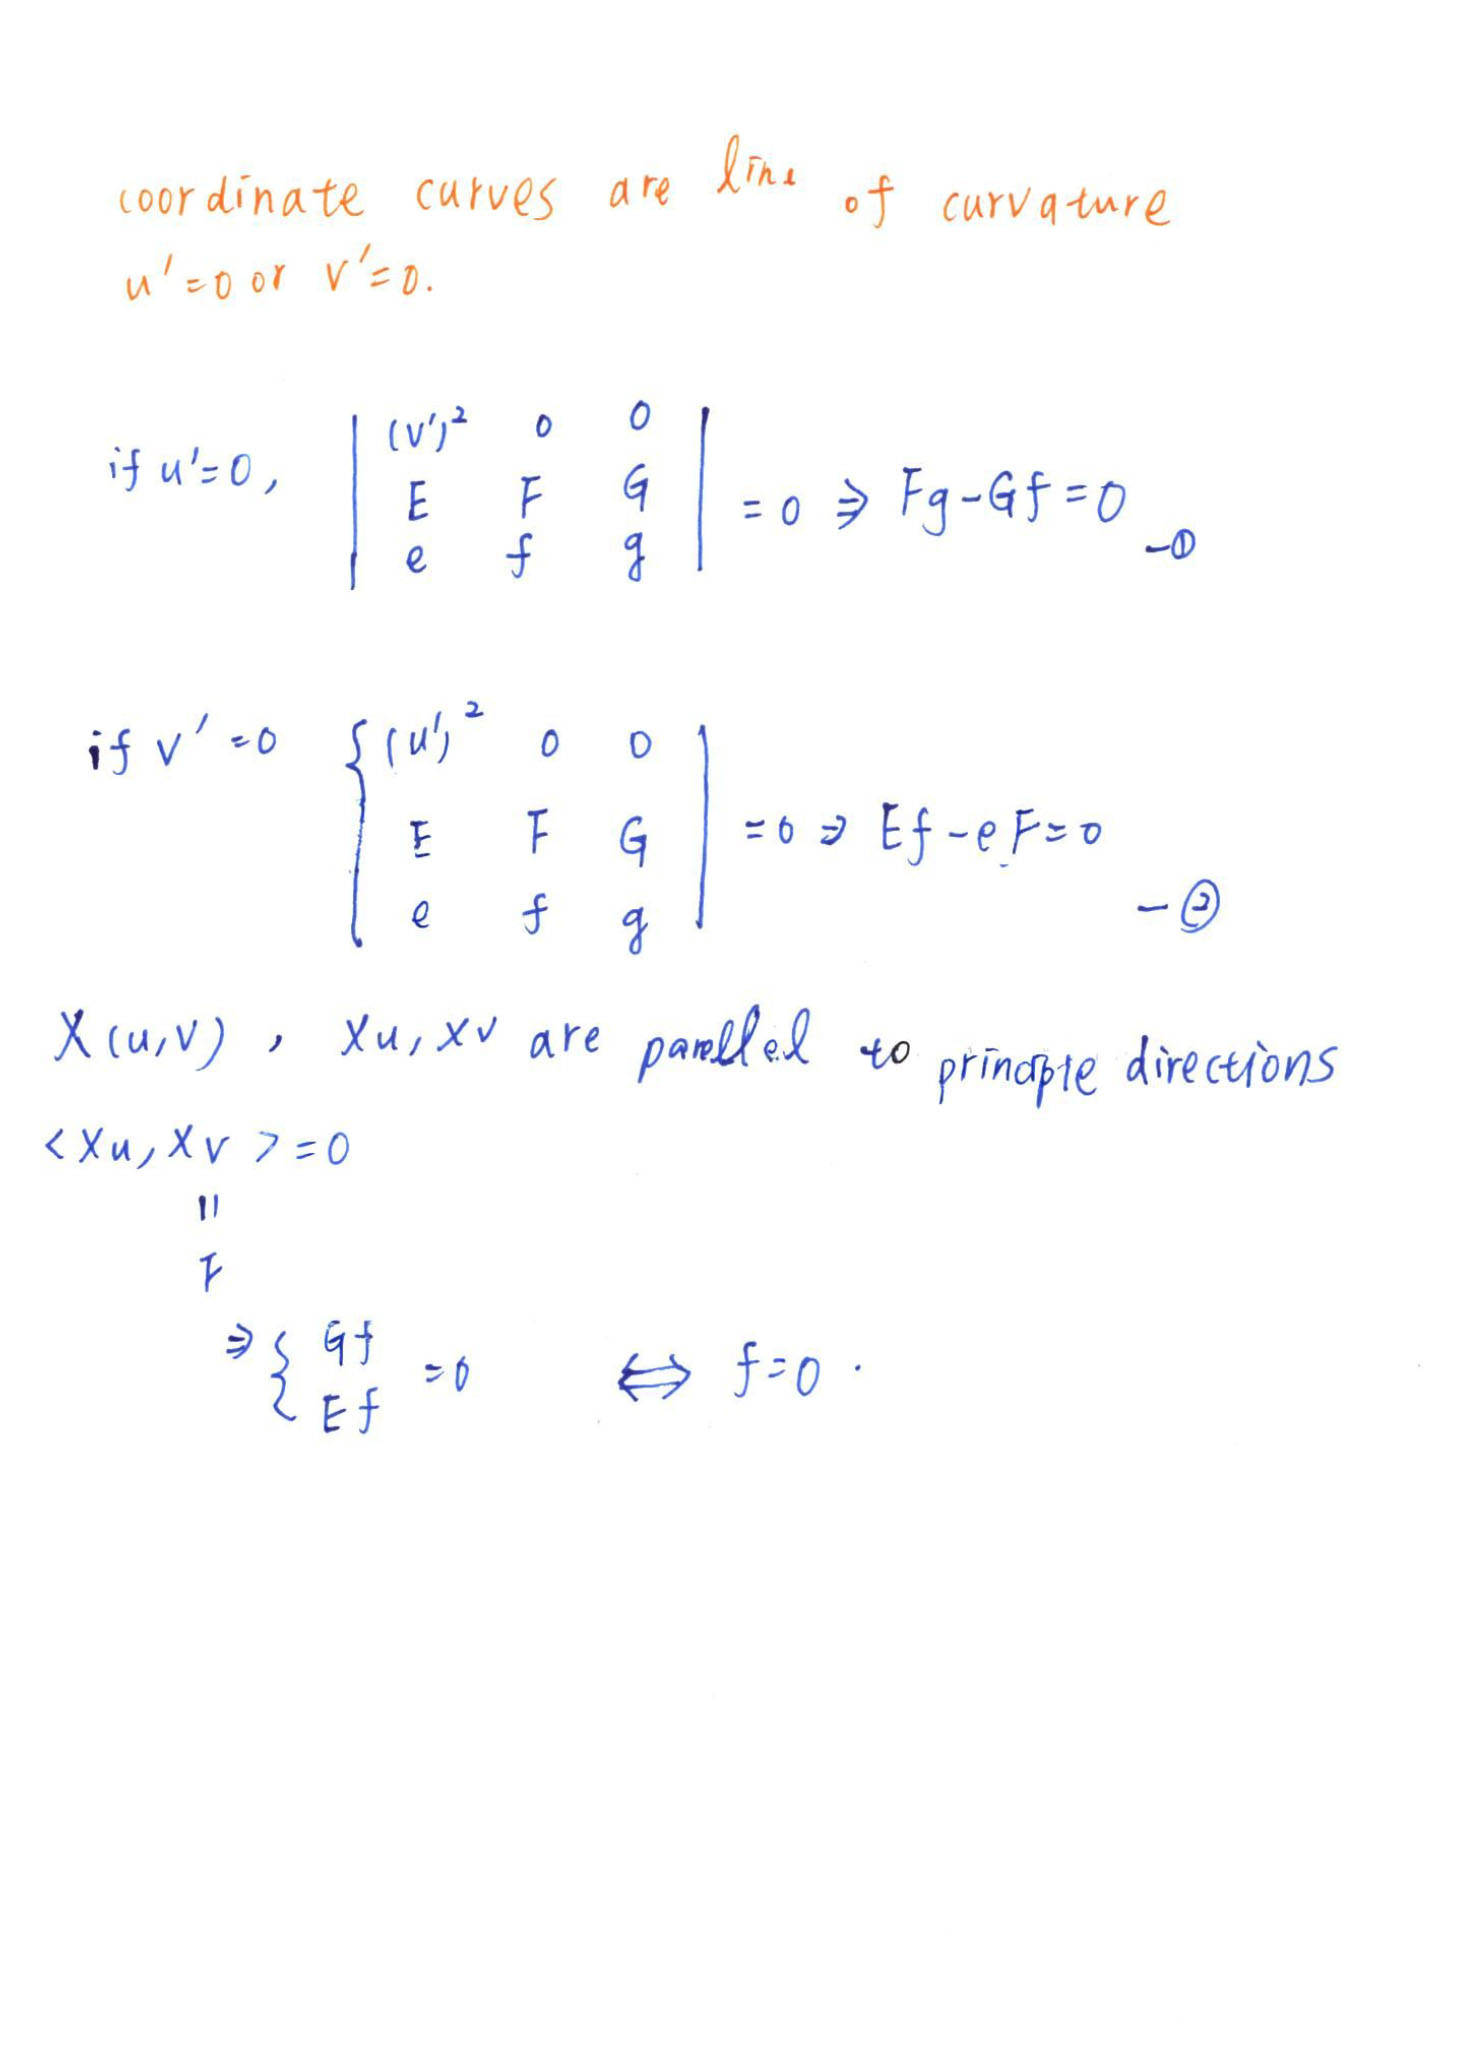 coordinate curves are line of curvature
u'=0 or v'=0.
if u'=0, | (v')² 0 0
E F G
e f g | = 0 ⇒ Fg-Gf=0 -①
if v'=0 { (u')² 0 0
E F G
e f g | =0 ⇒ Ef-eF=0 -②
X(u,v), Xu, Xv are parallel to principle directions
<Xu, Xv>=0
||
F
⇒ { Gf
Ef =0 ⇔ f=0.